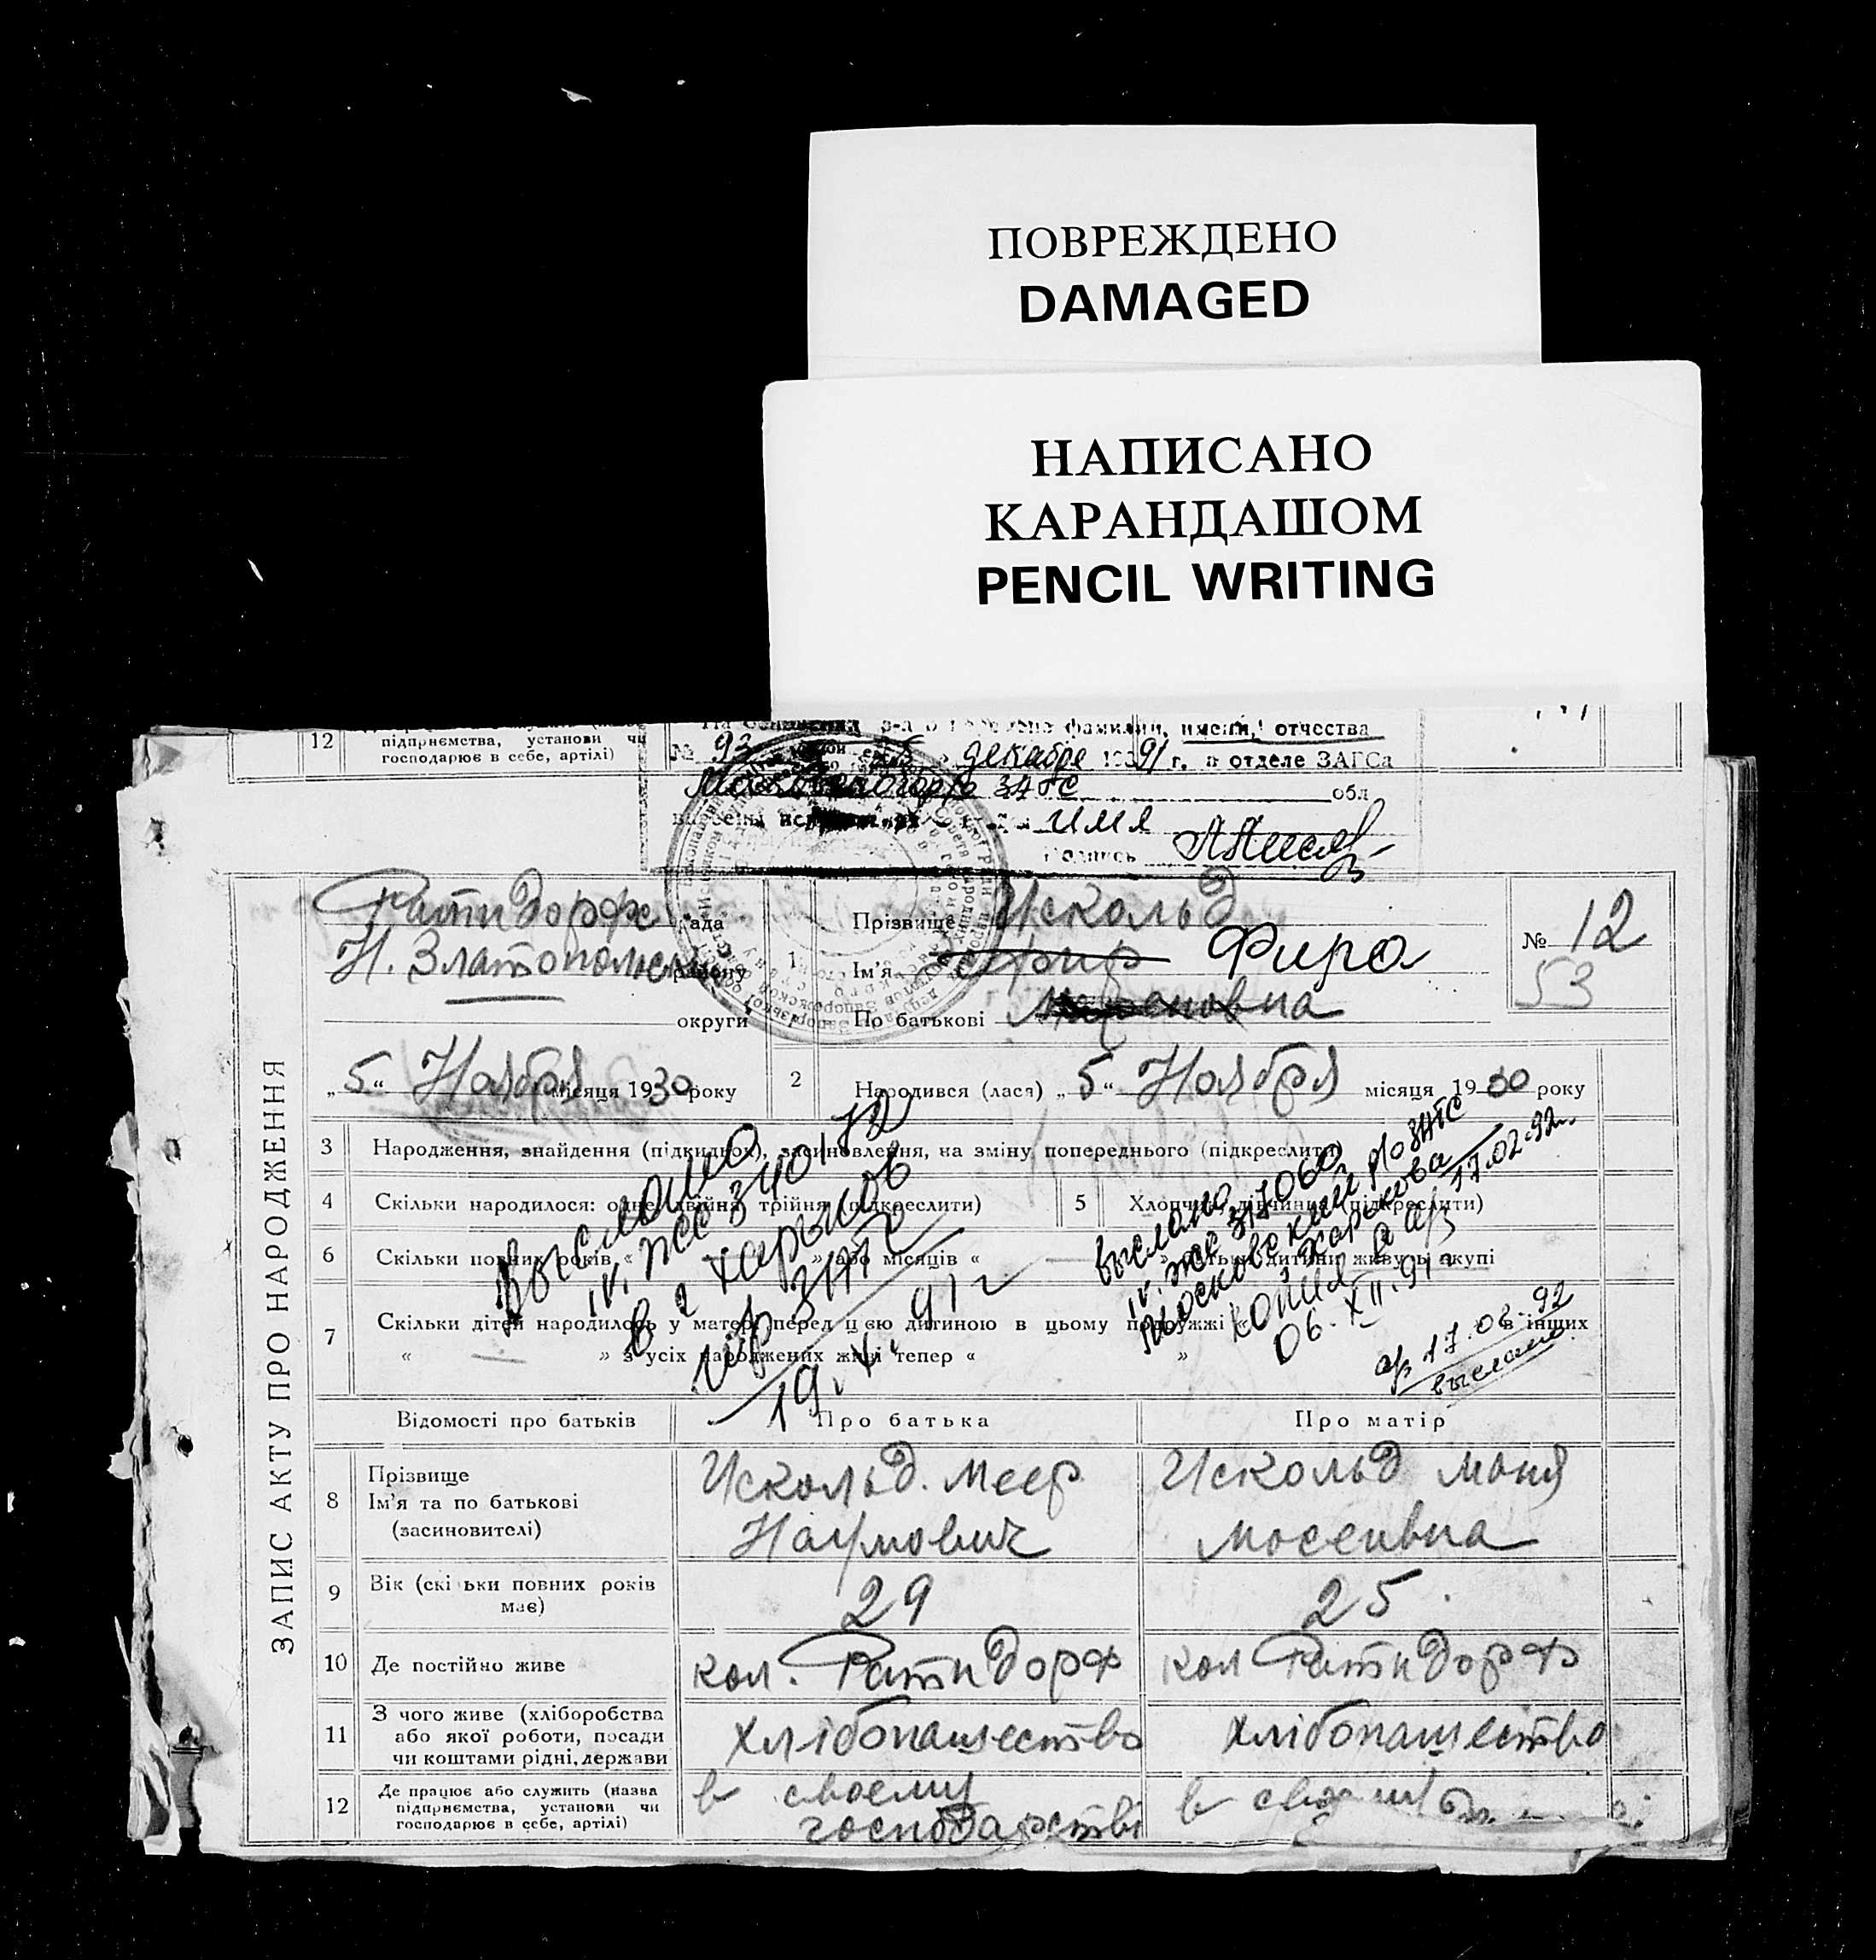 ПОВРЕЖДЕНО
DAMAGED
НАПИСАНО
КАРАНДАШОМ
PENCIL WRITING
12 підприємства, установи чи
господарює в себе, артілі)
фамилии, имени, отчества
№ 93 25 декабре 1991 г. в отделе ЗАГСа
ЗАГС обл
имя
Подпись
ЗАПИС АКТУ ПРО НАРОДЖЕННЯ
Ратндорф рада
Н. Златопольск району
округи
1 Прізвище Искольд
Ім'я Фира
По батькові
№ 12
53
„5“ Ноября місяця 1930 року
2 Народився (лася) „5“ Ноября місяця 1930 року
3 Народження, знайдення (підкидьок), засиновлення, на зміну попереднього (підкреслити)
4 Скільки народилося: одне, двійня, трійня (підкреслити)
5 Хлопчик, дівчинка (підкреслити)
6 Скільки повних років « » або місяців « » батьки дитини живуть вкупі
7 Скільки дітей народилось у матері перед цією дитиною в цьому подружжі « » в інших
« — » з усіх народжених живі тепер « »
Выслано
IV. ЖС 340172
в г Харьков
ЗАГС
19. X. 91 г
выслано
IV. ЖС 317060
Московский РОЗАГС
г Харькова
копия а/з 17.02.92г.
06. XII. 91 г.
17.02.92
выслано
Відомості про батьків
Про батька
Про матір
8 Прізвище
Ім'я та по батькові
(засиновителі)
Искольд. Меер
Наумович
Искольд Маня
Мосеивна
9 Вік (скільки повних років
має)
29
25
10 Де постійно живе
кол. Ратндорф
кол Ратндорф
11 З чого живе (хліборобства
або якої роботи, посади
чи коштами рідні, держави
хлібопашество
хлібопашество
12 Де працює або служить (назва
підприємства, установи чи
господарює в себе, артілі)
в своему
господарстві
в своему